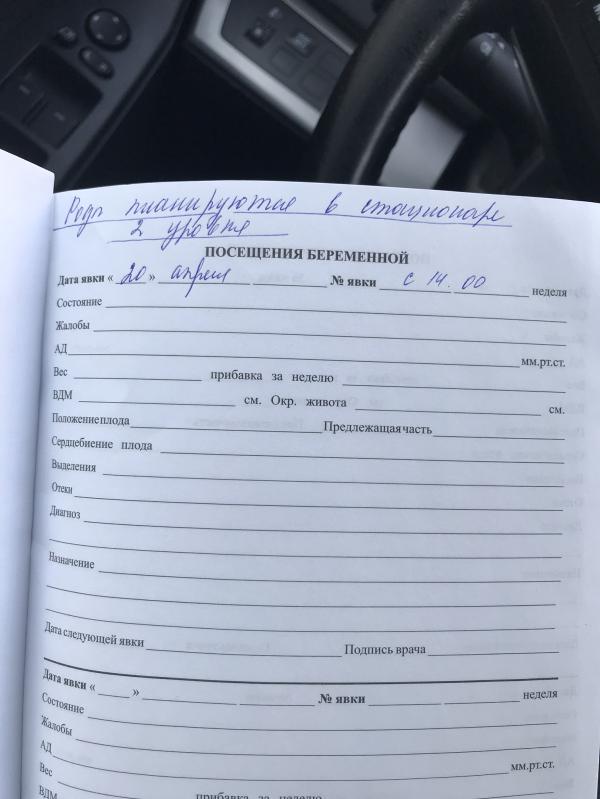 Роды планируются в стационаре
2 уровня
ПОСЕЩЕНИЯ БЕРЕМЕННОЙ
Дата явки « 20 » апреля № явки с 14.00 неделя
Состояние
Жалобы
АД мм.рт.ст.
Вес прибавка за неделю
ВДМ см. Окр. живота см.
Положение плода Предлежащая часть
Сердцебиение плода
Выделения
Отеки
Диагноз
Назначение
Дата следующей явки Подпись врача
Дата явки « » № явки неделя
Состояние
Жалобы
АД мм.рт.ст.
Вес прибавка за неделю
ВДМ